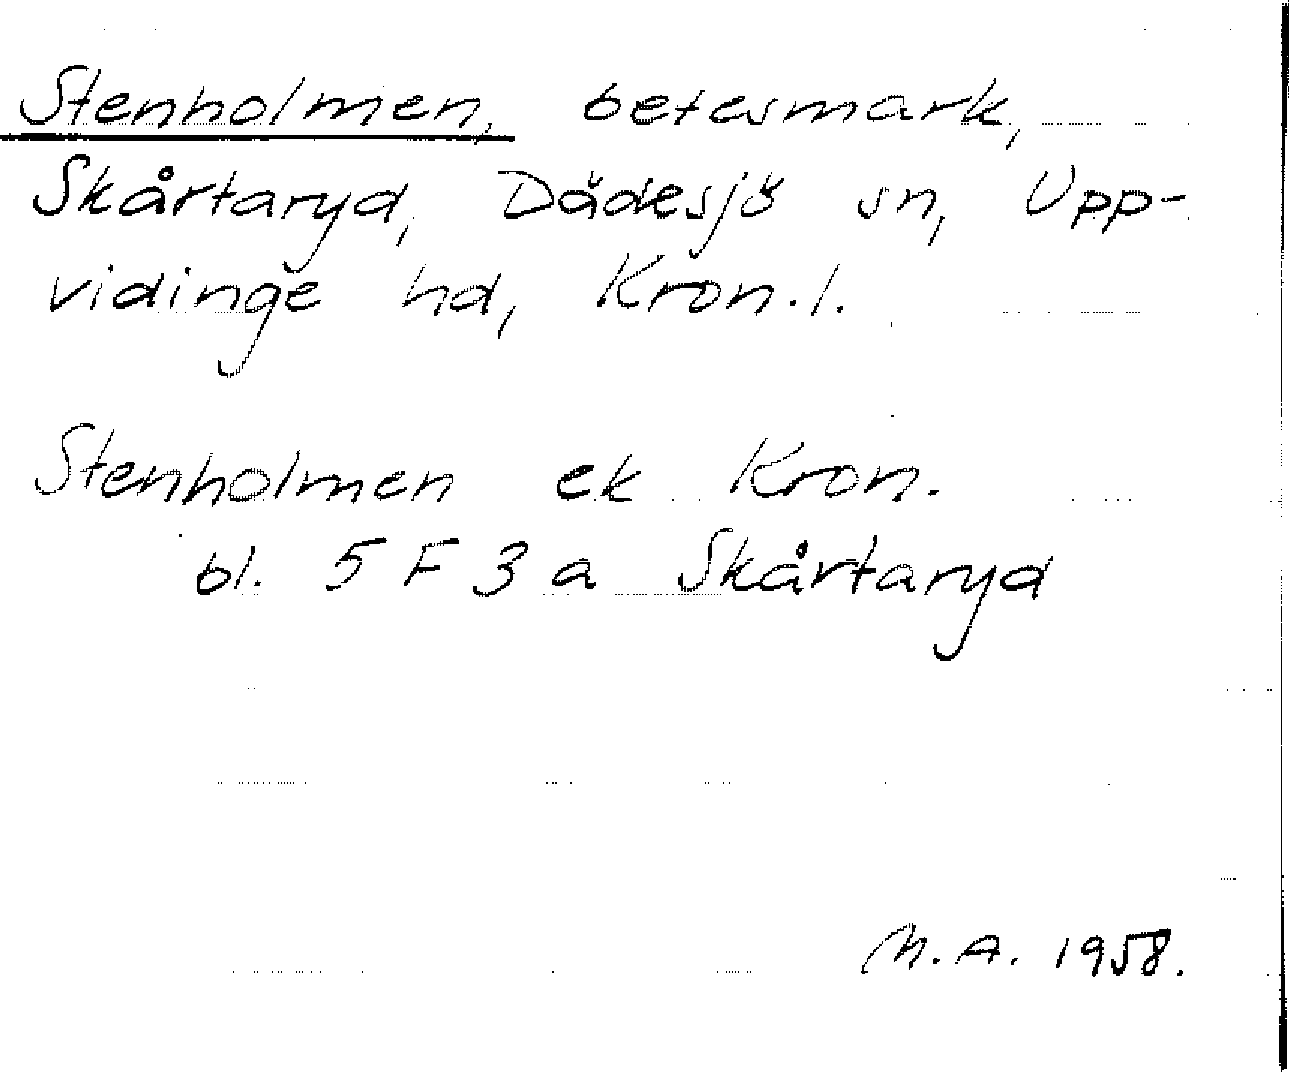 Stenholmen, betesmark,
Skårtaryd, Dädesjö sn, Upp-
vidinge hd, Kron.l.
Stenholmen ek Kron.
bl. 5 F 3 a Skårtaryd
M.A. 1958.